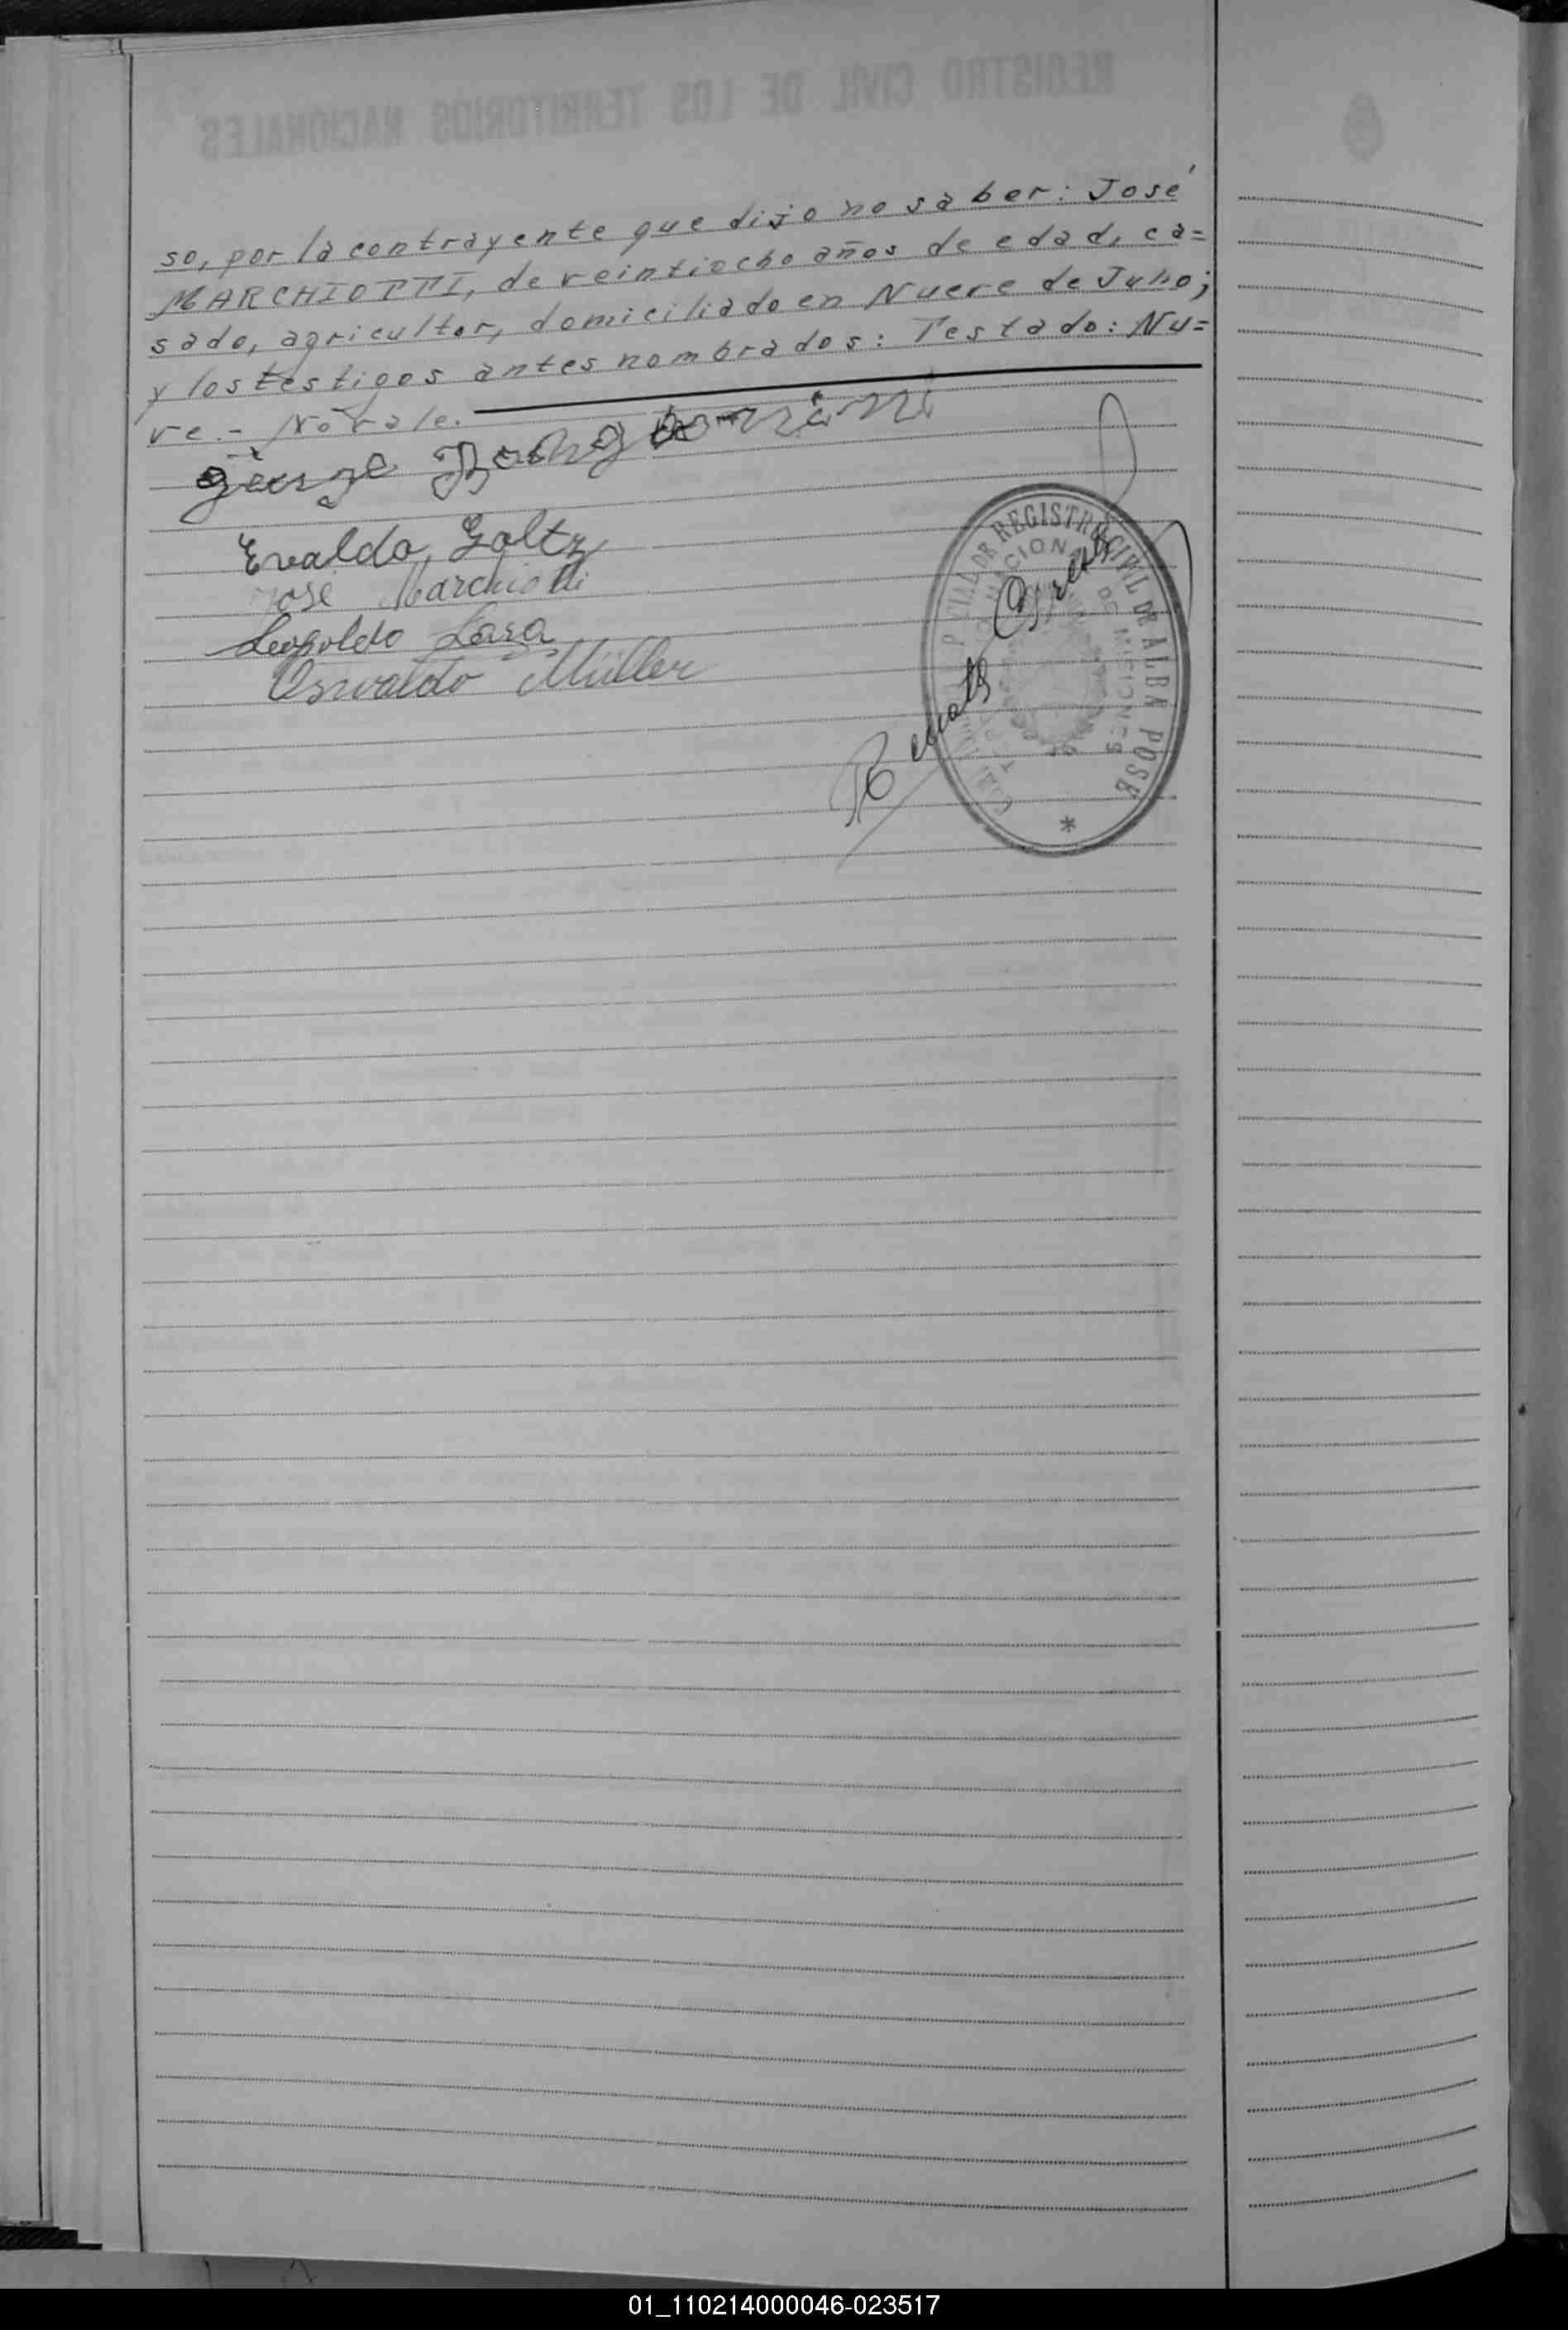 REGISTRO CIVIL DE LOS TERRITORIOS NACIONALES
so, por la contrayente que dijo no saber: José
MARCHIOTTI, de veintiocho años de edad, ca=
sado, agricultor, domiciliado en Nueve de Julio;
y los testigos antes nombrados: Testado: Nu=
ve.- No vale.
Evaldo Goltz
José Marchiotti
Leopoldo Lara
Osvaldo Müller
REGISTRO CIVIL DE ALBA POSE
*
01_110214000046-023517